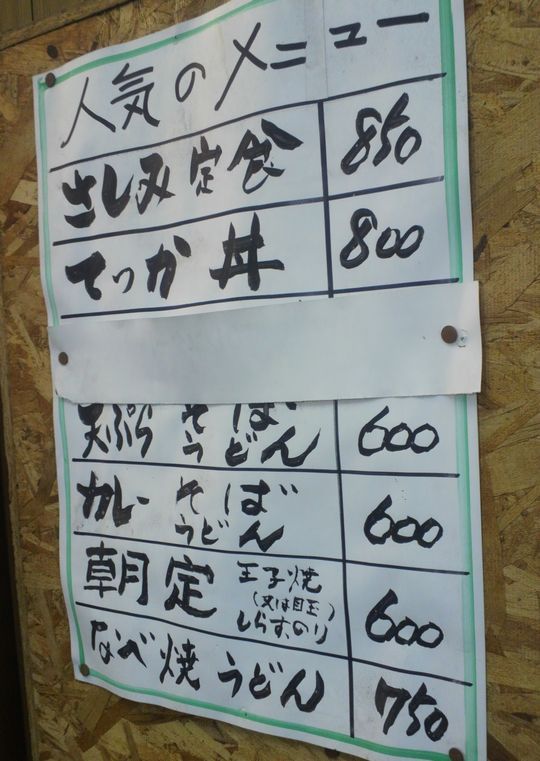 人気のメニュー
さしみ定食 850
てっか丼 800
天ぷら そば うどん 600
カレー そば うどん 600
朝定 王子焼 (又は目玉) しらす、のり 600
なべ焼うどん 750